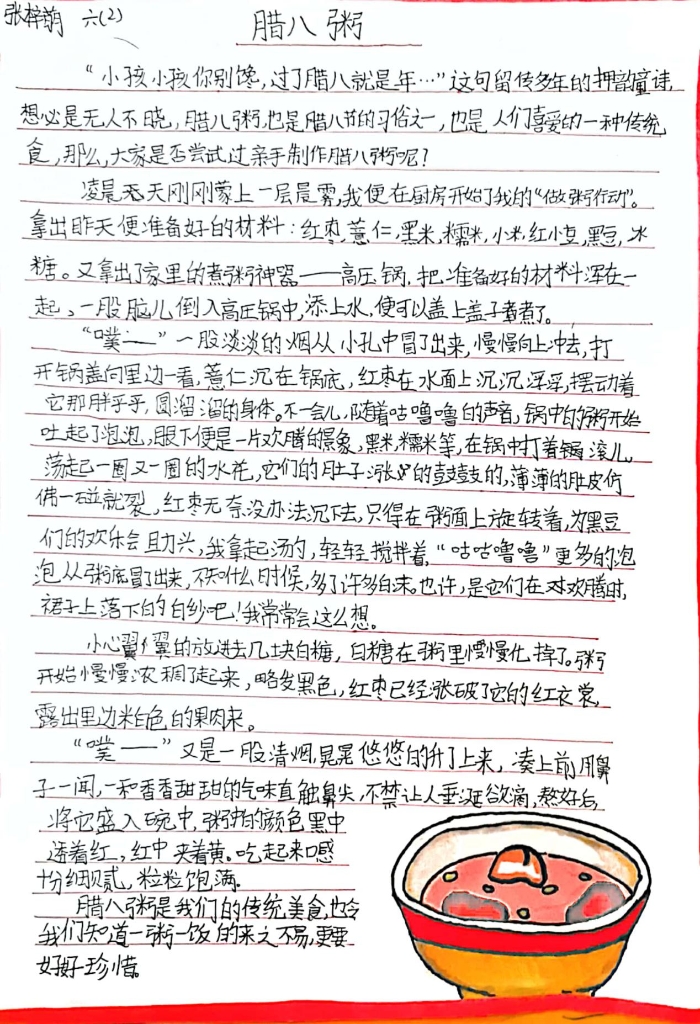 张梓萌 六(2)
腊八粥
“小孩小孩你别馋，过了腊八就是年…”这句留传多年的押韵童诗，
想必是无人不晓，腊八粥，也是腊八节的习俗之一，也是人们喜爱的一种传统
食，那么，大家是否尝试过亲手制作腊八粥呢？
凌晨天天刚刚蒙上一层晨雾，我便在厨房开始了我的“做粥行动”。
拿出昨天便准备好的材料：红枣，薏仁，黑米，糯米，小米，红小豆，黑豆，冰
糖。又拿出了家里的煮粥神器——高压锅，把准备好的材料浑在一
起，一股脑儿倒入高压锅中，添上水，便可以盖上盖子煮煮了。
“噗——”一股淡淡的烟从小孔中冒了出来，慢慢向上冲去，打
开锅盖向里边一看，薏仁沉在锅底，红枣在水面上沉沉浮浮，摆动着
它那胖乎乎，圆溜溜的身体。不一会儿，随着咕噜噜的声音，锅中的粥开始
吐起了泡泡，眼下便是一片欢腾的景象，黑米，糯米等，在锅中打着锅滚儿，
荡起一圈又一圈的水花，它们的肚子涨的鼓鼓的，薄薄的肚皮仿
佛一碰就裂，红枣无奈没办法沉下去，只得在粥面上旋转着，为黑豆
们的欢乐会助兴，我拿起汤勺，轻轻搅拌着，“咕咕噜噜”更多的泡
泡从粥底冒了出来，不知什么时候，多了许多白沫。也许，是它们在欢腾时，
裙子上落下的白纱吧！我常常会这么想。
小心翼翼的放进去几块白糖，白糖在粥里慢慢化掉了。粥
开始慢慢浓稠了起来，略发黑色，红枣已经涨破了它的红衣裳，
露出里边米白色的果肉来。
“噗——”又是一股清烟，晃晃悠悠的升了上来，凑上前，用鼻
子一闻，一种香香甜甜的气味直触鼻尖，不禁让人垂涎欲滴，熬好后
将它盛入碗中，粥的颜色黑中
透着红，红中夹着黄。吃起来口感
十分细腻，粒粒饱满。
腊八粥是我们的传统美食，也令
我们知道一粥一饭的来之不易，更要
好好珍惜。